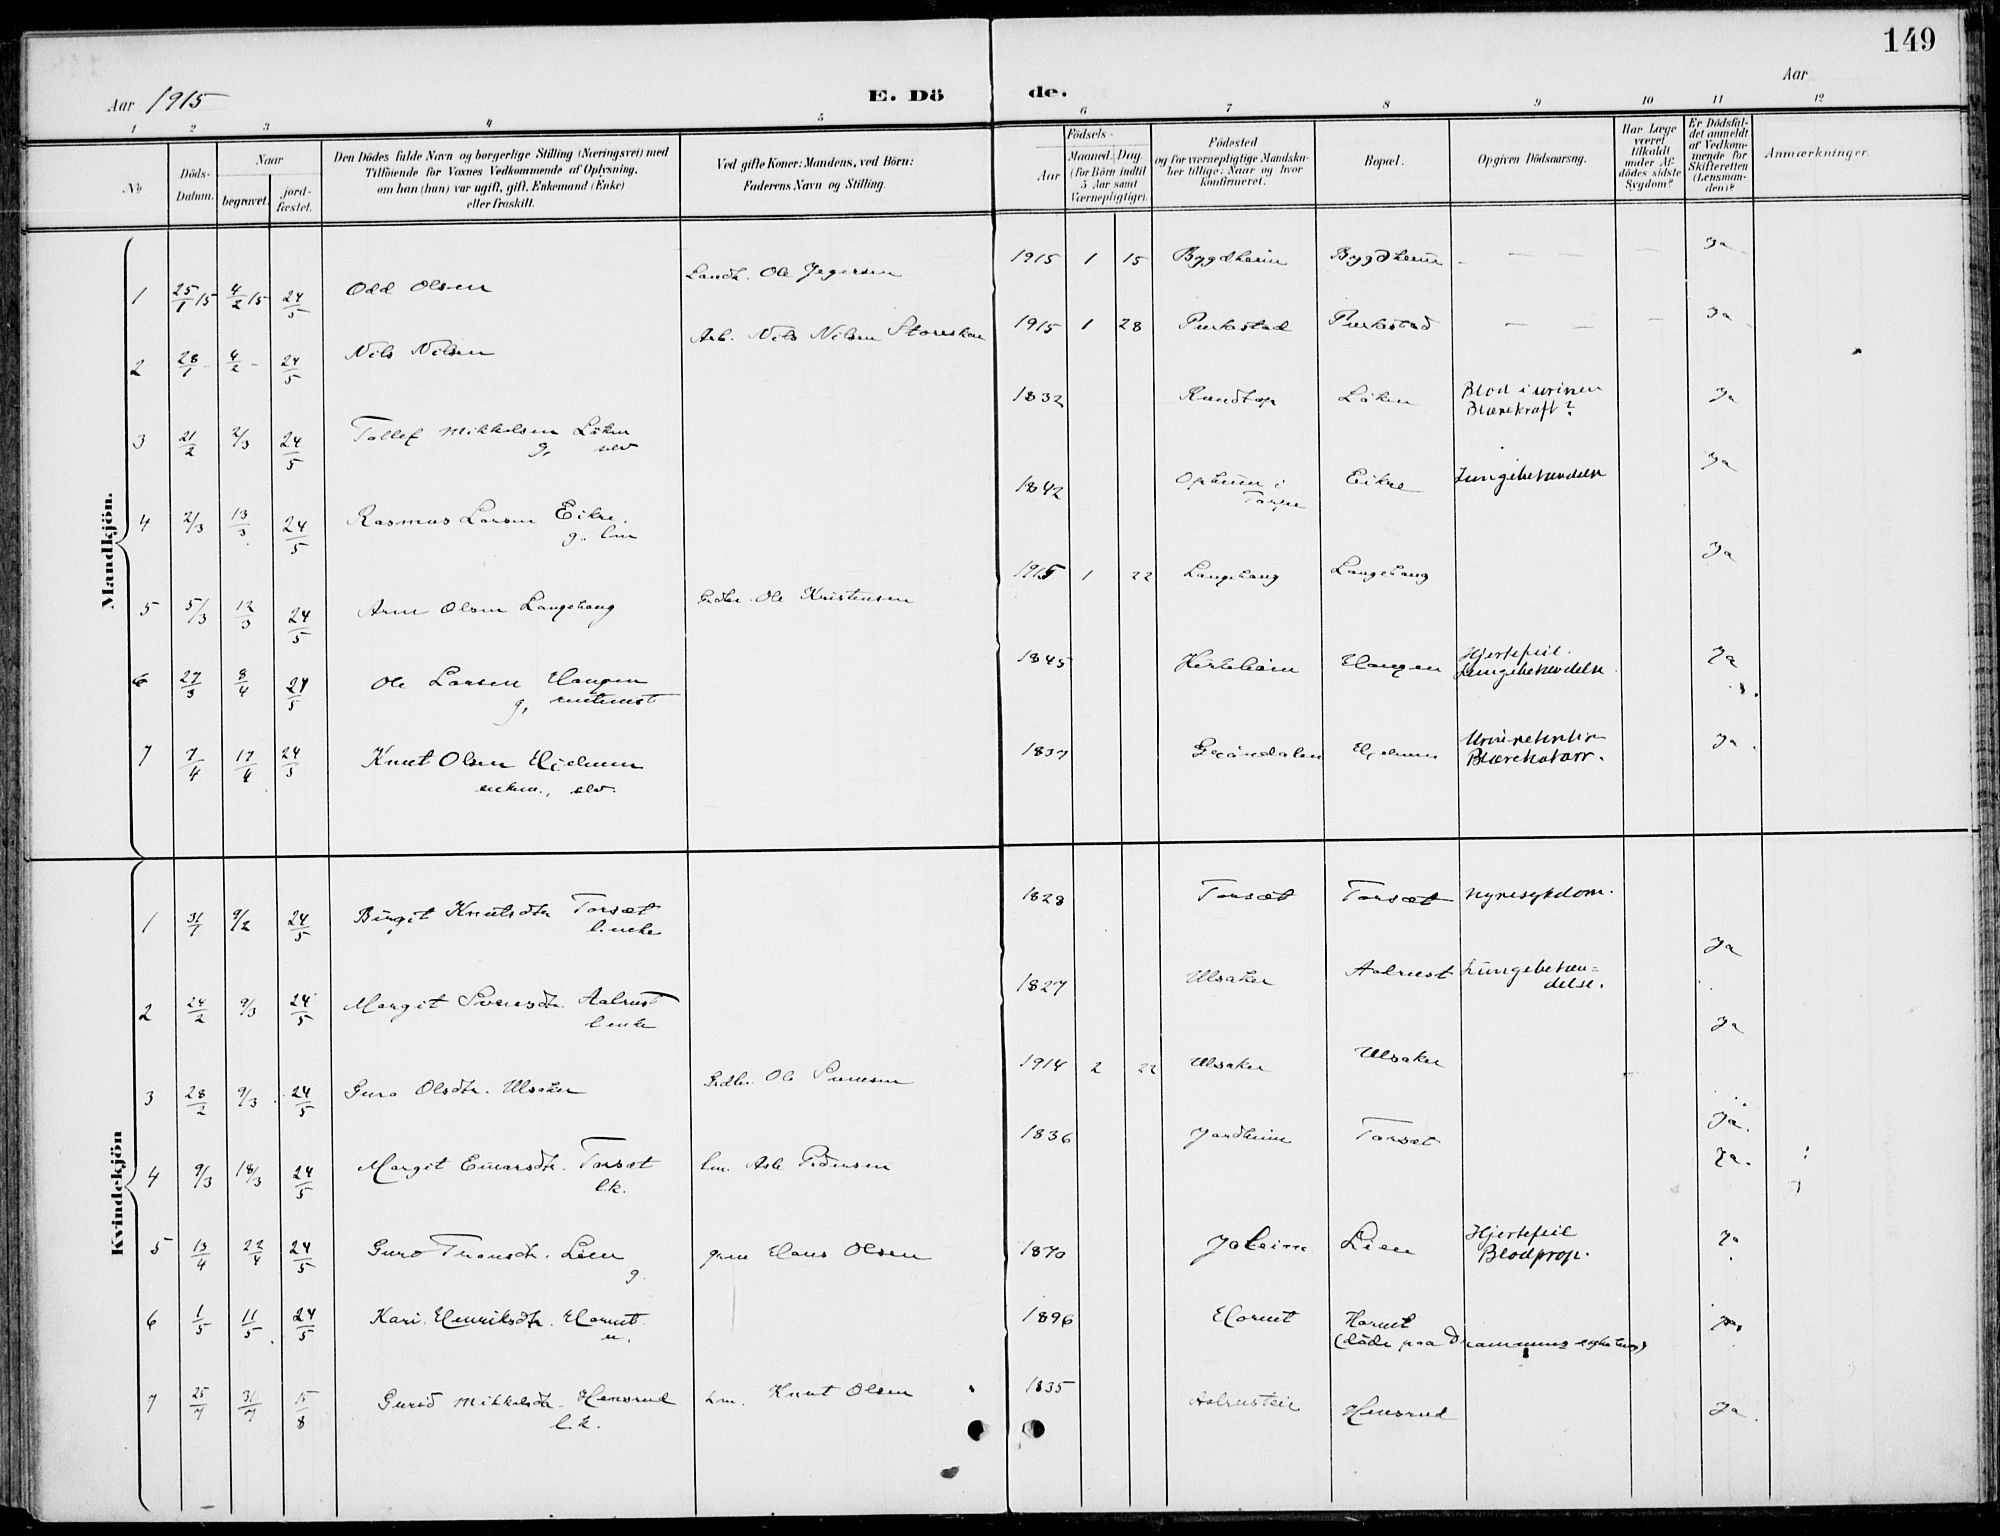 149
Aar 1915
E. Dö
de.
Aar
1 2 3 4 5 6 7 8 9 10 11 12
No
Döds-
Datum.
Naar
begravet.
jord-
fæstet.
Den Dödes fulde Navn og borgerlige Stilling (Næringsvei) med
Tilföiende for Voxnes Vedkommende af Oplysning,
om han (hun) var ugift, gift, Enkemand (Enke)
eller fraskilt.
Ved gifte Koner: Mandens, ved Börn:
Faderens Navn og Stilling.
Födsels-
Aar
Maaned. Dag.
(for Börn indtil
5 Aar samt
Værnepligtige).
Födested
og for værnepligtige Mandska-
ber tillige: Naar og hvor
konfirmeret.
Bopæl.
Opgiven Dödsaarsag.
Har Læge
været
tilkaldt
under Af-
dödes sidste
Sygdom?
Er Dödsfal-
det anmeldt
af Vedkom-
mende for
Skifteretten
(Lensman-
den)?
Anmærkninger.
Mandkjön.
1 25/1 15 4/2 15 24/5 Odd Olsen Landh. Ole 1915 1 15 Bygdheim Bygdheim - — — — Ja
2 28/1 - 4/2 - 24/5 Nils Nilsen Arb. Nils Nilsen 1915 1 28 Purkestad Purkestad — — — Ja
3 21/2 2/3 24/5 Tollef Mikkelsen Löken 1832 Löken Blod i urinen Ja
g, selv Blærekræft?
4 2/3 13/3 24/5 Rasmus Larsen Eikre. 1842 Opheim i Eikre Lungebetændelse Ja
g.
Torpe
5 5/3 12/3 24/5 Arne Olsen Langehaug Gdbr. Ole Kristensen 1915 1 22 Langehaug Langehaug Ja
6 27/3 8/4 24/5 Ole Larsen Haugen 1845 Haugen Hjertefeil. Ja
g, Lungebetændelse
7 7/4 17/4 24/5 Knut Olsen Hjelmen 1837 Gröndalen Hjelmen Urinretention Ja.
enkem., selv. Blærekatarr.
Kvindekjön
1 31/1 9/2 24/5 Birgit Knutsdtr Torsæt 1828 Torsæt Torsæt Nyresykdom. Ja
2 24/2 9/3 24/5 Margit Svensdtr. Aalrust 1827 Ulsaker Aalrust Lungebetæn=
delse. Ja
3 28/2 9/3 24/5 Guro Olsdtr. Ulsaker Gdbr. Ole 1914 2 22 Ulsaker Ulsaker Ja.
4 9/3 18/3 24/5 Margit Einarsdtr. Torsæt Asle Pedersen 1836 Jordheim Torsæt Ja.
l.k.
5 13/4 22/4 24/5 Guro Trondsdtr. Lien Hans Olsen 1870 Lien Hjertefeil Ja
g. Blodprop.
6 1/5 11/5 24/5 Kari Henriksdtr. 1896 Ja
u. (döde paa Drammens sykehus)
7 25/7 31/7 15/8 Gurid Mikkelsdtr. Hensrud Knut Olsen 1835 Hensrud Ja.
l.k.